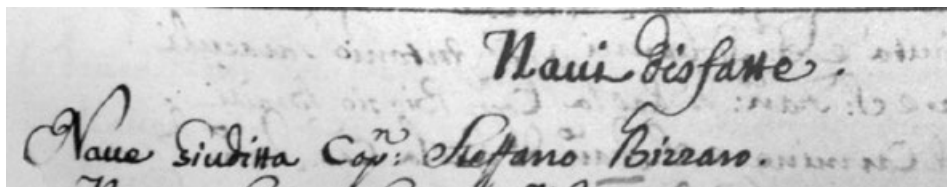 Naui disfatte.
Naue Giuditta Cap.n: Steffano Bizzaro.